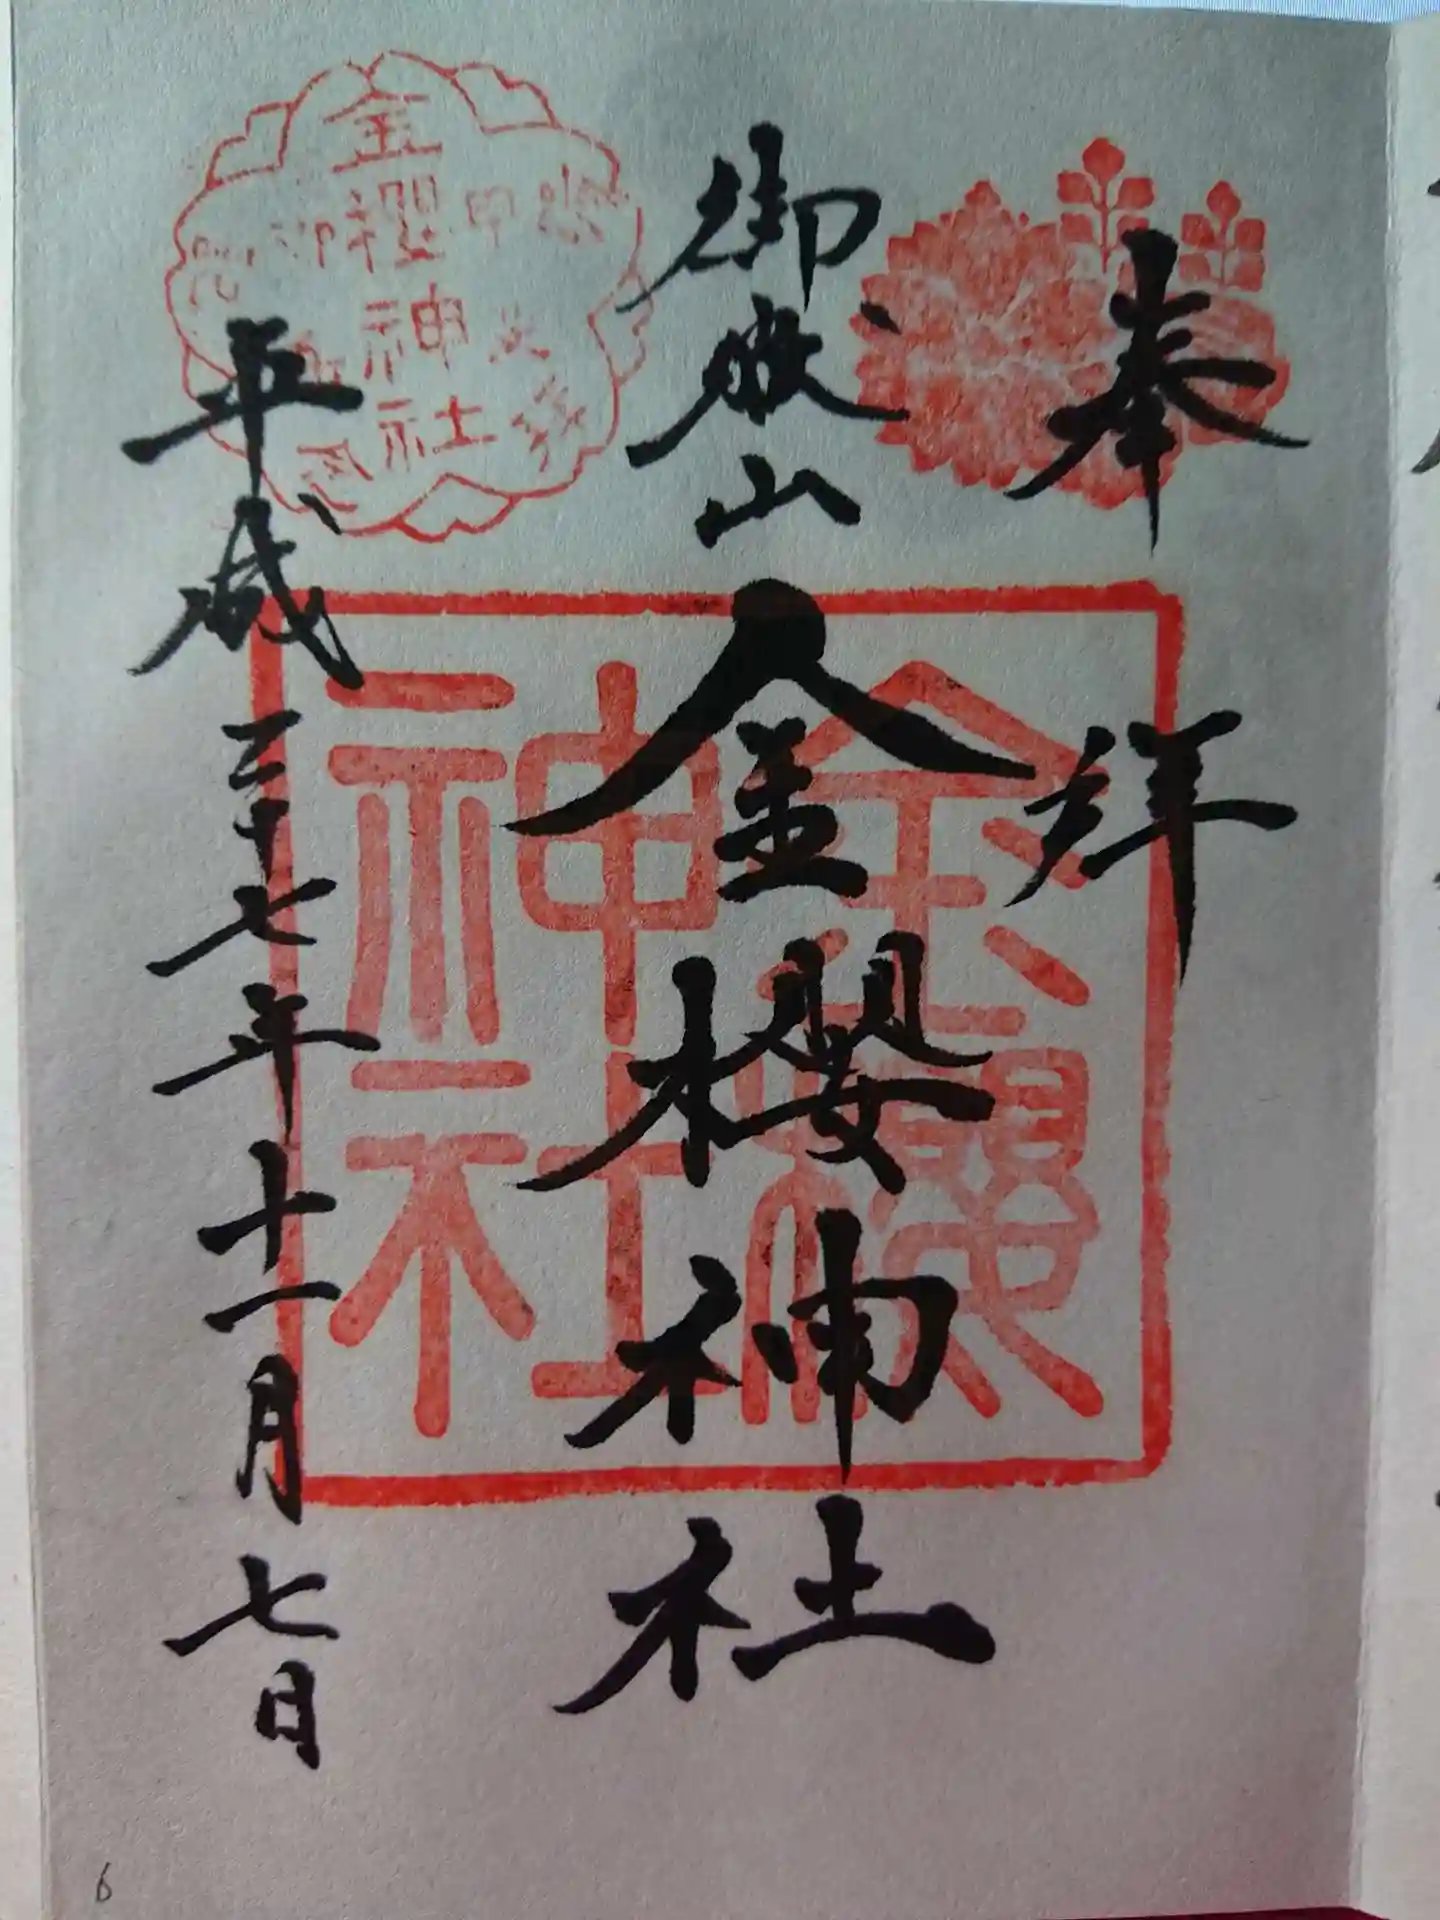 奉拜
御嶽山
金櫻神社
平成二十七年十一月七日
金櫻神社
金櫻神社
6